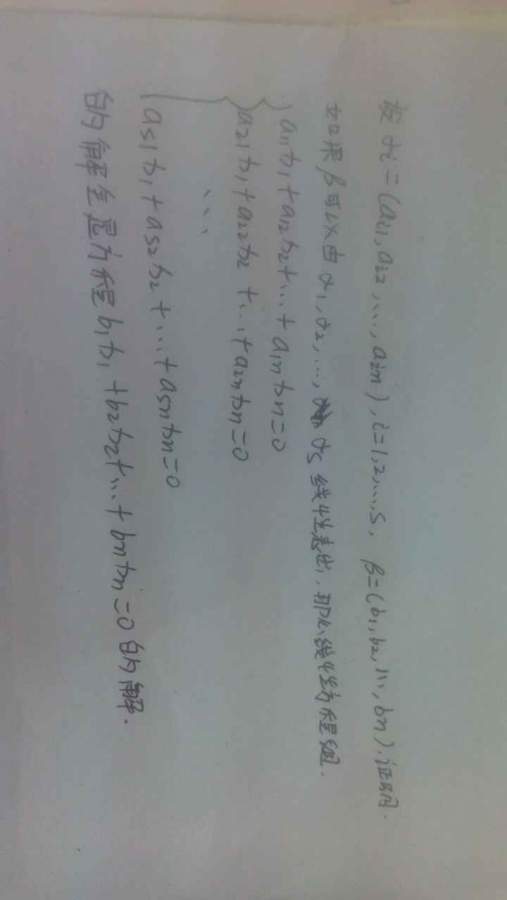 设αi=(ai1,ai2,...,ain),i=1,2,...,s, β=(b1,b2,...,bn).证明.
如果β可以由α1,α2,...,αs线性表出,那么线性方程组.
a11x1+a12x2+...+a1nxn=0
a21x1+a22x2+...+a2nxn=0
...
as1x1+as2x2+...+asnxn=0
的解全是方程b1x1+b2x2+...+bnxn=0的解.